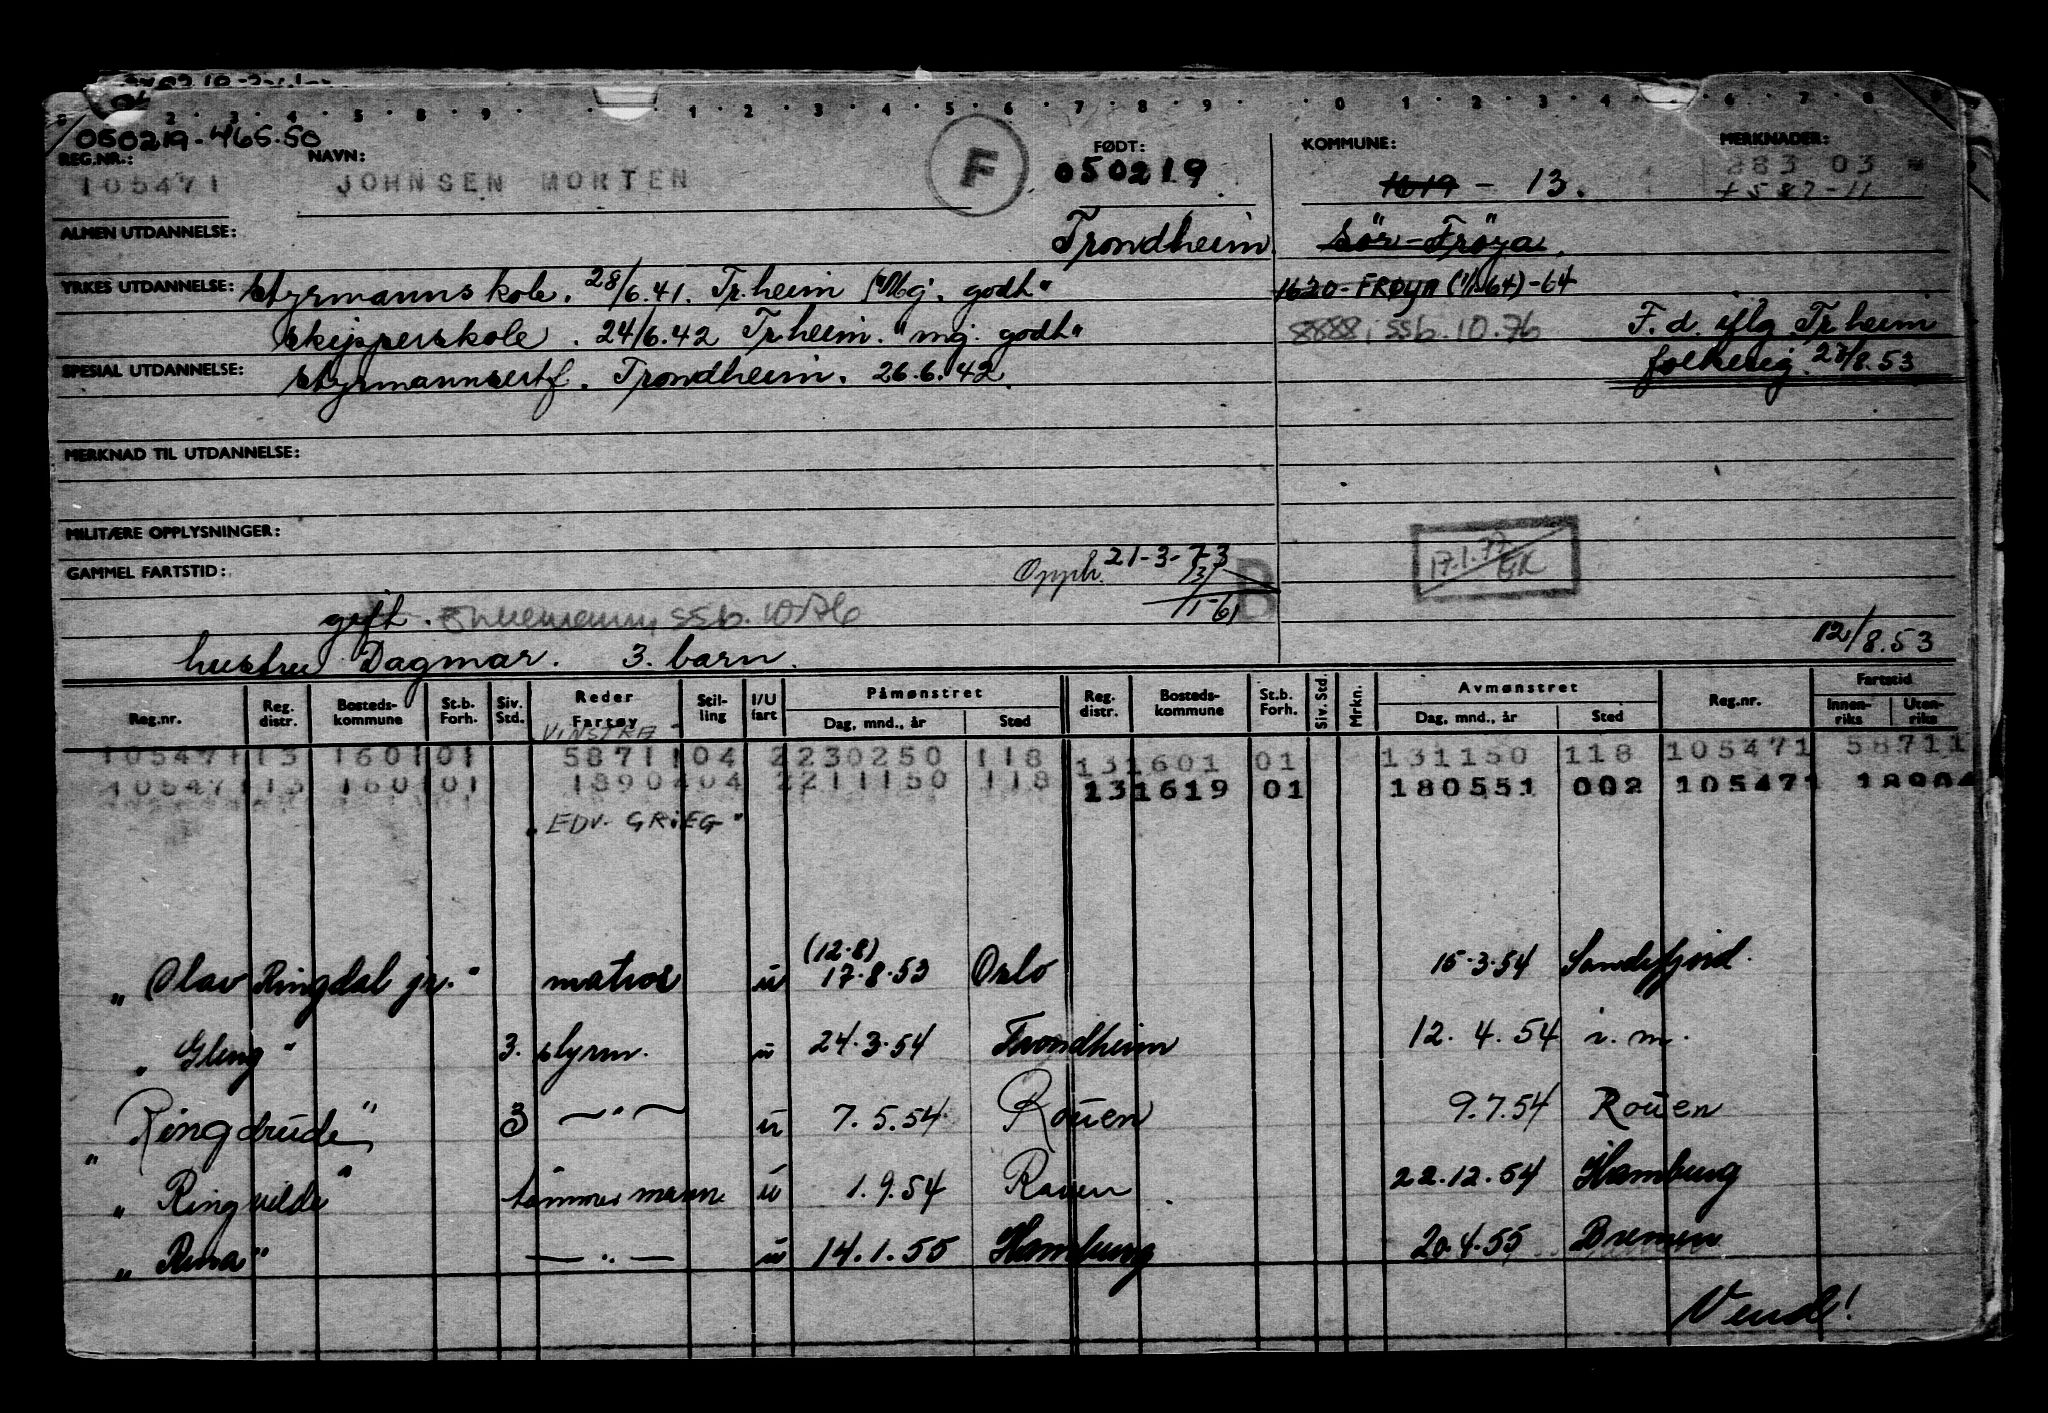 050219-465.50
REG.NR.: NAVN: F FØDT: KOMMUNE: MERKNADER:
105471 JOHNSEN MORTEN 050219 1619 - 13. 883 03
+587-11
ALMEN UTDANNELSE: Trondheim Sör-Fröya.
YRKES UTDANNELSE: Styrmannskole. 28/6.41. Tr.heim "Mg. godt" 1620-FRØYA (1/1-64)-64
skipperskole. 24/6.42 Tr.heim. "mg. godt" 8888, ssb. 10.76 F.d. iflg Tr.heim
SPESIAL UTDANNELSE: Styrmannsertf. Trondheim. 26.6.42. folkereg. 28/8.53
MERKNAD TIL UTDANNELSE:
MILITÆRE OPPLYSNINGER:
GAMMEL FARTSTID: Opph. 21-3-73 B 17.1.77
gift. Enkemann, ssb. 10.76 1/1-61
hustru Dagmar. 3. barn. 12/8.53
Reg.nr. Reg. distr. Bosteds-kommune St.b. Forh. Siv. Std. Reder Fartøy Stil-ling I/U fart Påmønstret Dag, mnd., år Sted Reg. distr. Bosteds-kommune St.b. Forh. Siv. Std. Mrkn. Avmønstret Dag, mnd., år Sted Reg.nr. Fartstid Innen-riks Uten-riks
VINSTRA
105471 13 1601 01 5871 104 2 230250 118 13 1601 01 131150 118 105471 58711
105471 13 1601 01 1890 404 2 211150 118 13 1619 01 180551 002 105471 18904
"EDV. GRIEG"
(12.8)
"Olav Ringdal jr." matros u 17.8.53 Oslo 15.3.54 Sandefjord.
"Gleng" 3. styrm. u 24.3.54 Trondheim 12.4.54 i.m.
"Ringdrude" 3 —"— u 7.5.54 Rouen 9.7.54 Rouen
"Ringvilde" tömmermann u 1.9.54 Rouen 22.12.54 Hamburg
"Rina" —"— u 14.1.55 Hamburg 20.4.55 Bremen
Vend!